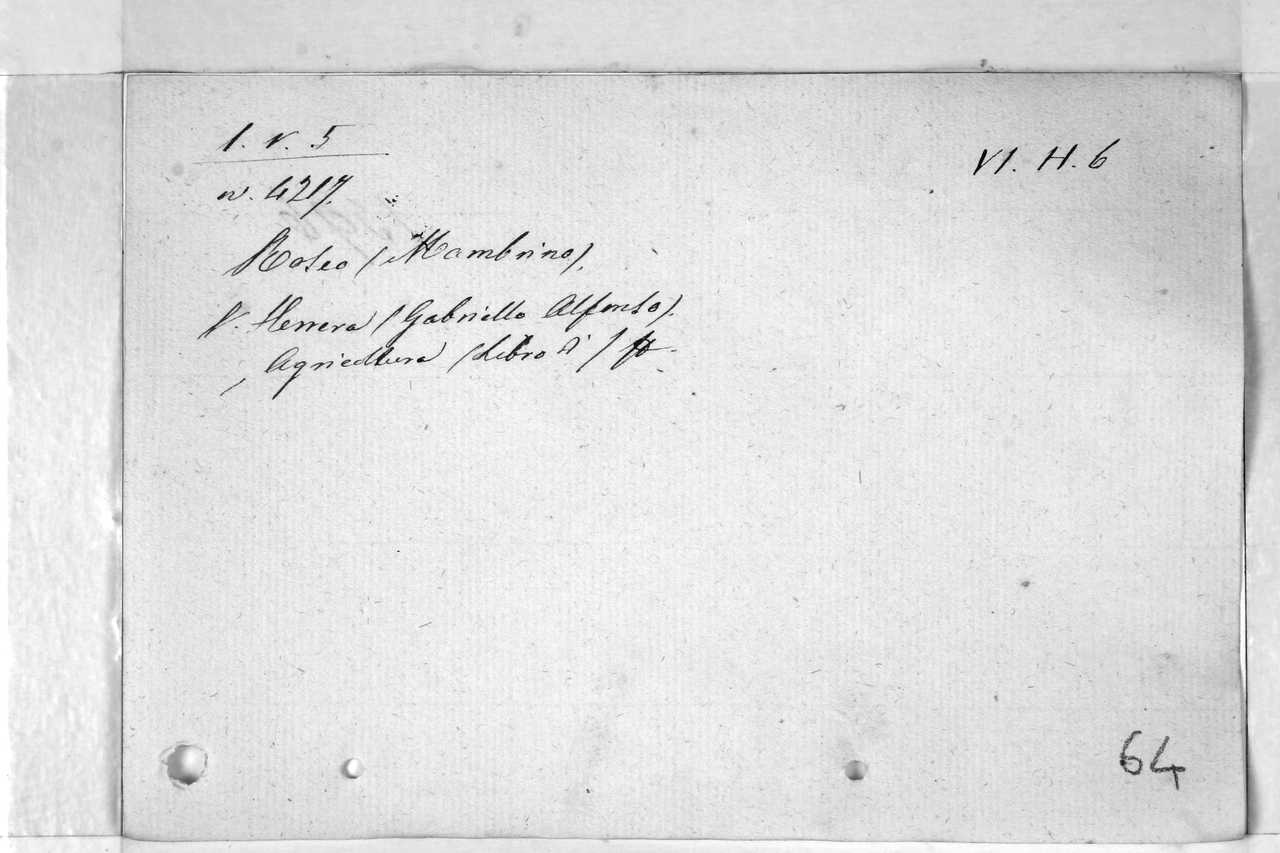 1. V. 5
VI. H. 6
n. 4217.
Roseo (Mambrino).
V. Herrera (Gabriello Alfonso).
Agricoltura (Libro d')
64